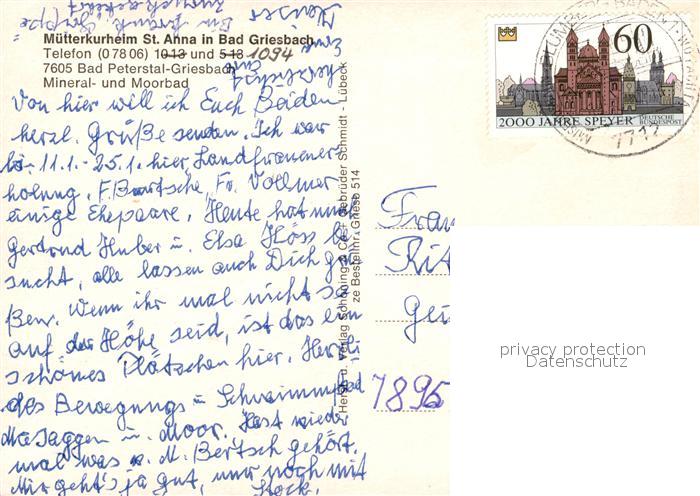 Mütterkurheim St. Anna in Bad Griesbach
Telefon (0 78 06) 1013 und 513 1094
7605 Bad Peterstal-Griesbach
Mineral- und Moorbad
Von hier will ich Euch Beiden
herzl. Grüße senden. Ich war
11.1.-25.1. hier, Landfrauener-
holung, F. Bartsche, Fr. Vollmer
einige Ehepaare, Heute hat mich
Gertrud Huber u. Elsa Höss be
sucht, alle lassen auch Dich grü
ßen. Wenn ihr mal nicht so
auf der Höhe seid, ist das ein
schönes Plätschen hier. Herrli
des Bewegungs u Schwimmbad
Massagen u. Moor. Hast wieder
mal was v. M. Bertsch gehört.
Mir geht's ja gut, nur noch mit
Stock.
Herst. u. Verlag Schöning & Co + Gebrüder Schmidt - Lübeck
ze Bestellnr. Griesb 514
60
2000 JAHRE SPEYER
DEUTSCHE
BUNDESPOST
Frau
Rit
7895
privacy protection
Datenschutz